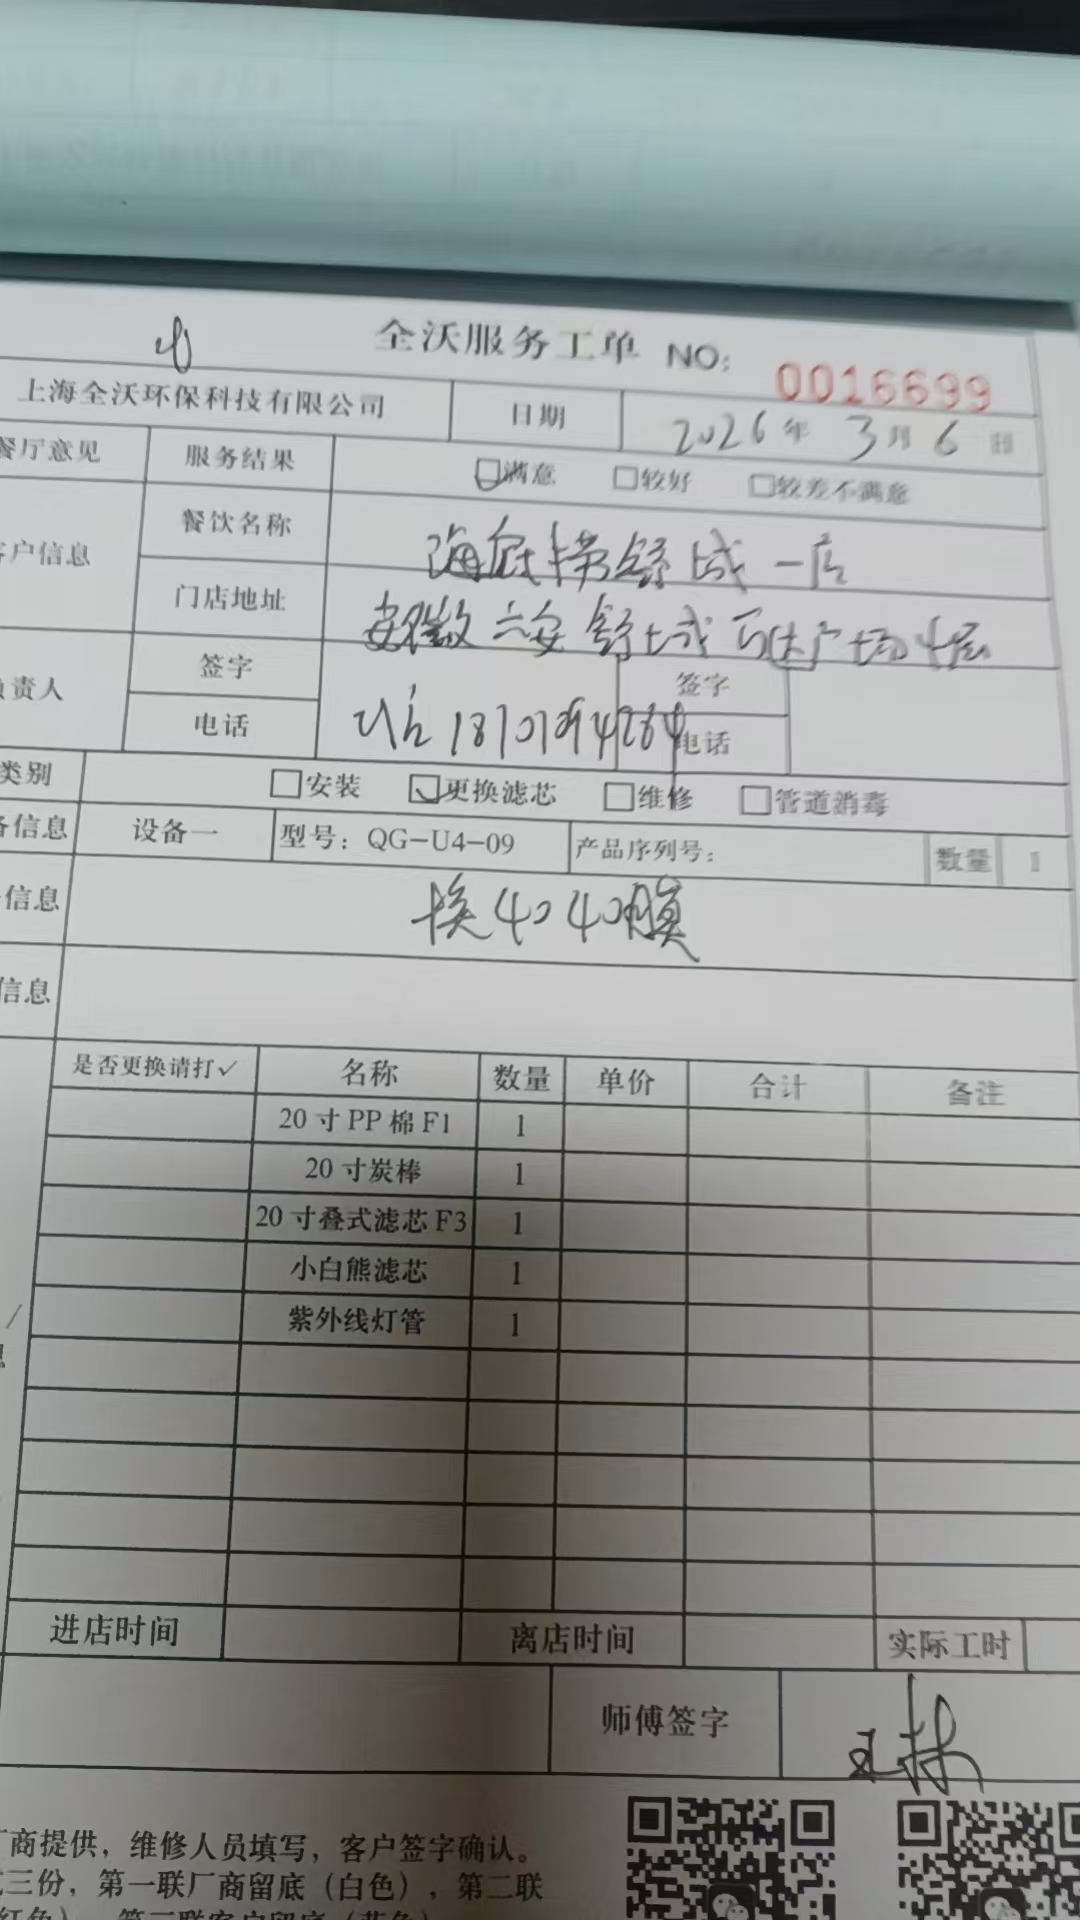 全沃服务工单 NO: 0016699
上海全沃环保科技有限公司 日期 2026年 3月 6日
餐厅意见 服务结果 满意 较好 较差不满意
客户信息 餐饮名称 海底捞舒城一店
门店地址 安徽六安舒城万达广场
负责人 签字 签字
电话 电话
类别 安装 更换滤芯 维修 管道消毒
备信息 设备一 型号：QG-U4-09 产品序列号： 数量 1
信息 换4040膜
信息
是否更换请打✓ 名称 数量 单价 合计 备注
20寸PP棉F1 1
20寸炭棒 1
20寸叠式滤芯F3 1
小白熊滤芯 1
紫外线灯管 1
进店时间 离店时间 实际工时
师傅签字 王林
厂商提供，维修人员填写，客户签字确认。
式三份，第一联厂商留底（白色），第二联